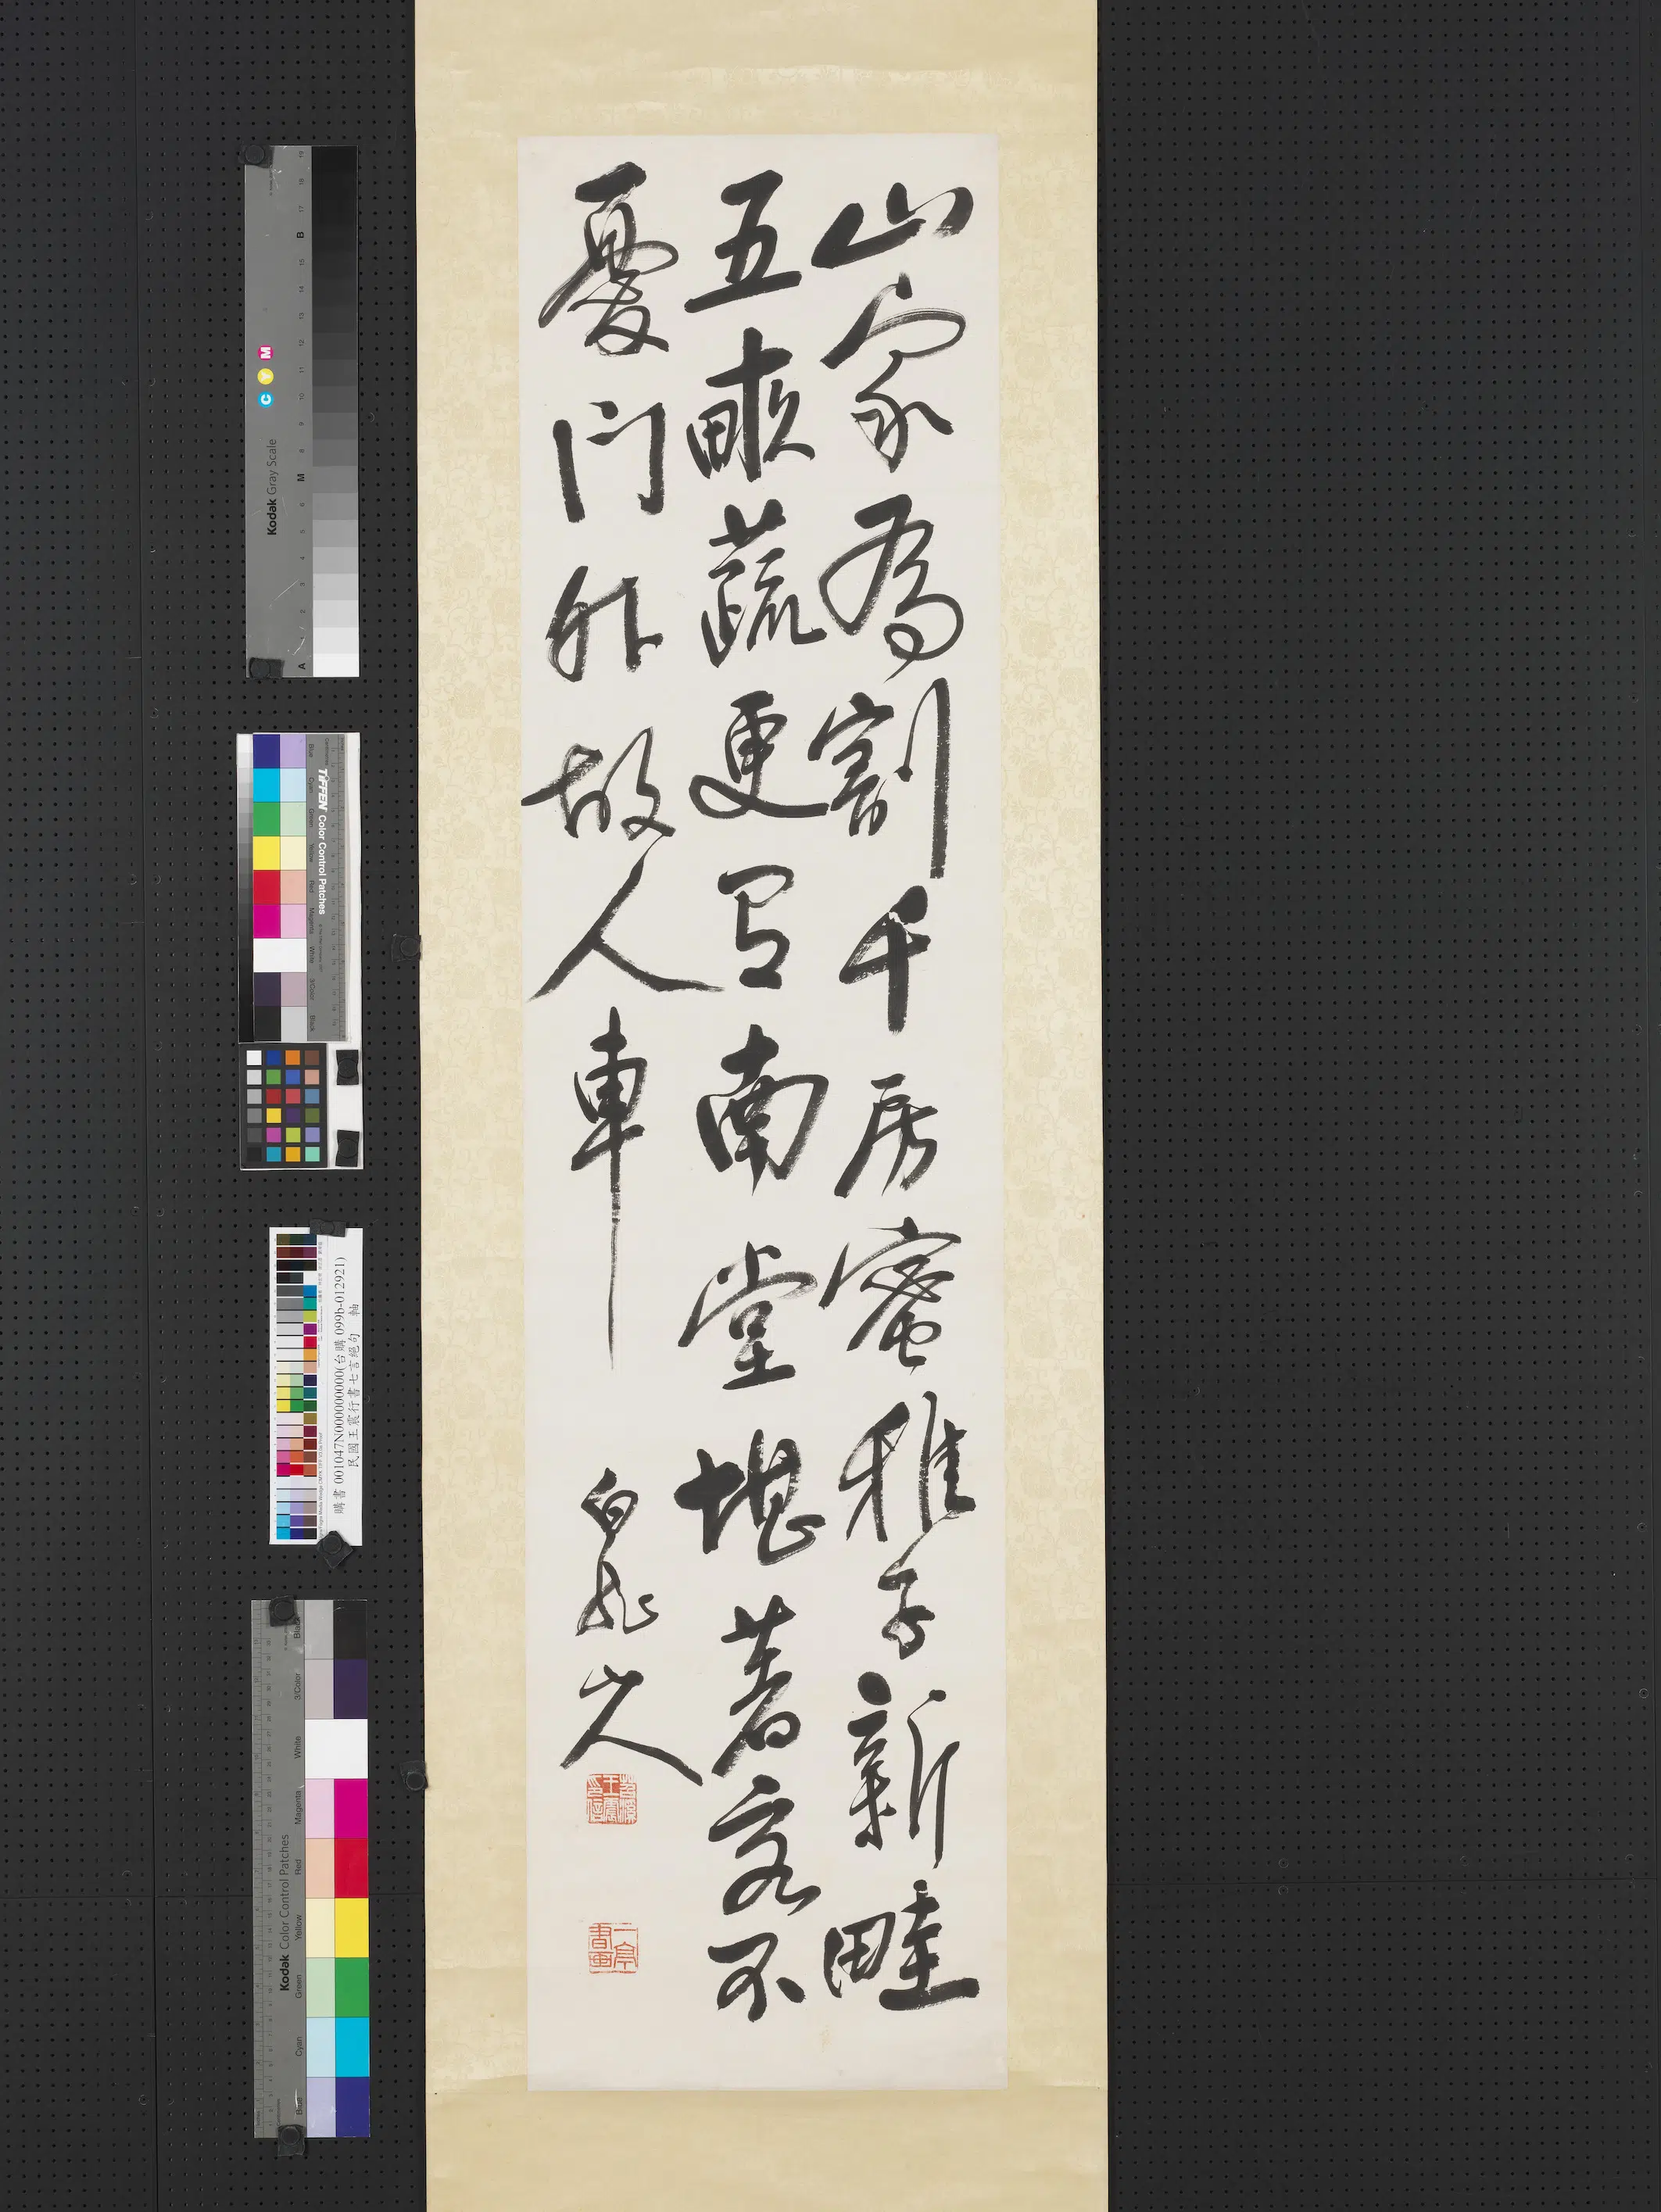 山家為割千房蜜稚子新畦
五畝蔬更有南堂堪著客不
憂門外故人車
白龍山人
苕溪王震印信
一亭書畫
Kodak Gray Scale
C Y M
A
M
B
TIFFEN Color Control Patches
Blue
Cyan
Green
Yellow
Red
Magenta
White
3/Color
Black
購書 001047N000000000(台購 099b-012921)
民國王震行書七言絕句 軸
Kodak Color Control Patches
Blue
Cyan
Green
Yellow
Red
Magenta
White
3/Color
Black